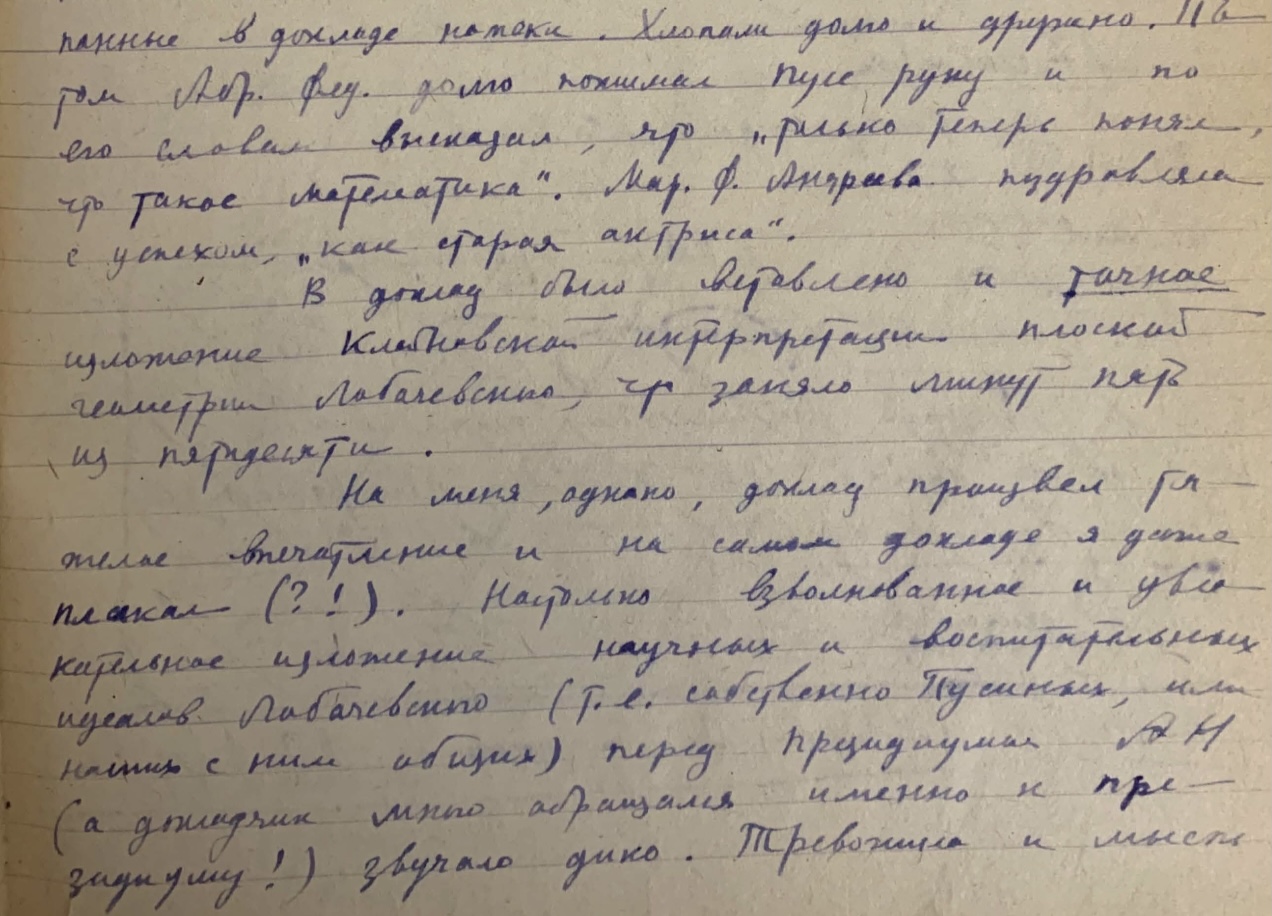 панные в докладе намеки. Хлопали долго и дружно. По-
том Абр. Фед. долго пожимал Пусе руку и по
его словам высказал, что „только теперь понял,
что такое математика“. Мар. Ф. Андреева поздравляла
с успехом, „как старая актриса“.
В доклад было вставлено и точное
изложение Клейновской интерпретации плоской
геометрии Лобачевского, что заняло минут пять
из пятидесяти.
На меня, однако, доклад произвел тя-
желое впечатление и на самом докладе я даже
плакал (?!). Настолько взволнованное и увле-
кательное изложение научных и воспитательных
идеалов Лобачевского (т.е. собственно Пусиных, или
наших с ним общих) перед президиумом АН
(а докладчик много обращался именно к пре-
зидиуму!) звучало дико. Тревожила и мысль